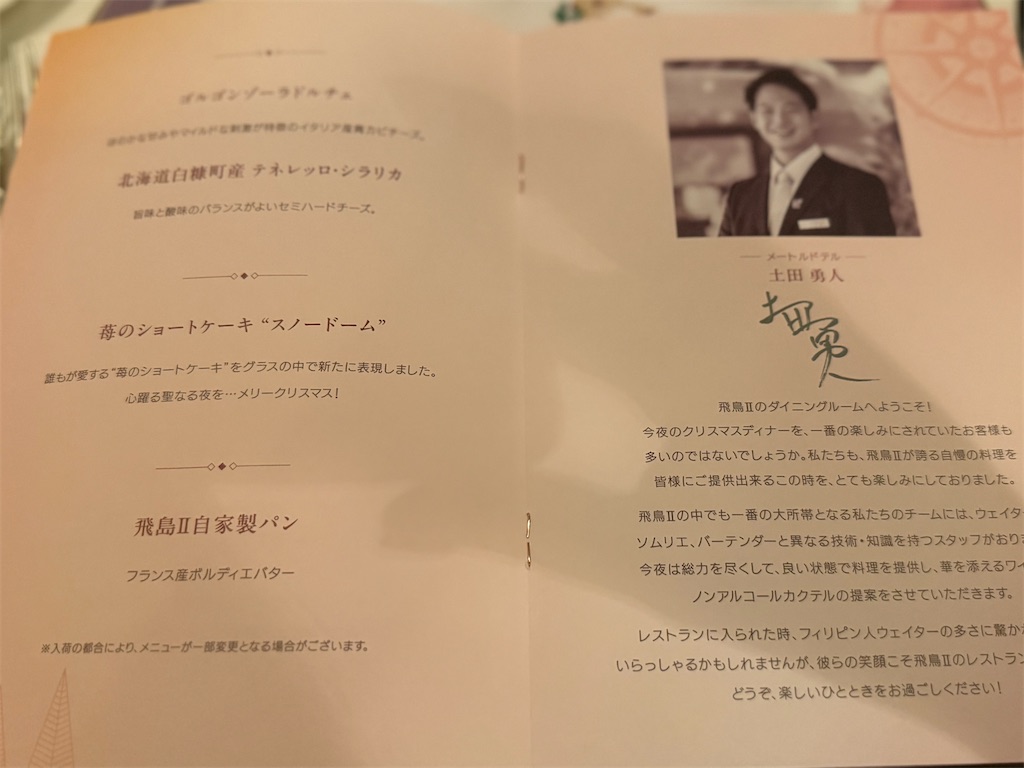 ゴルゴンゾーラドルチェ
ほのかな甘みやマイルドな刺激が特徴のイタリア産青カビチーズ。
北海道白糠町産 テネレッロ・シラリカ
旨味と酸味のバランスがよいセミハードチーズ。
苺のショートケーキ “スノードーム”
誰もが愛する“苺のショートケーキ”をグラスの中で新たに表現しました。
心躍る聖なる夜を…メリークリスマス!
飛鳥Ⅱ自家製パン
フランス産ボルディエバター
※入荷の都合により、メニューが一部変更となる場合がございます。
メートルドテル
土田 勇人
土田勇人
飛鳥Ⅱのダイニングルームへようこそ!
今夜のクリスマスディナーを、一番の楽しみにされていたお客様も
多いのではないでしょうか。私たちも、飛鳥Ⅱが誇る自慢の料理を
皆様にご提供出来るこの時を、とても楽しみにしておりました。
飛鳥Ⅱの中でも一番の大所帯となる私たちのチームには、ウェイター
ソムリエ、バーテンダーと異なる技術・知識を持つスタッフがおりま
今夜は総力を尽くして、良い状態で料理を提供し、華を添えるワイ
ノンアルコールカクテルの提案をさせていただきます。
レストランに入られた時、フィリピン人ウェイターの多さに驚か
いらっしゃるかもしれませんが、彼らの笑顔こそ飛鳥Ⅱのレストラン
どうぞ、楽しいひとときをお過ごしください!